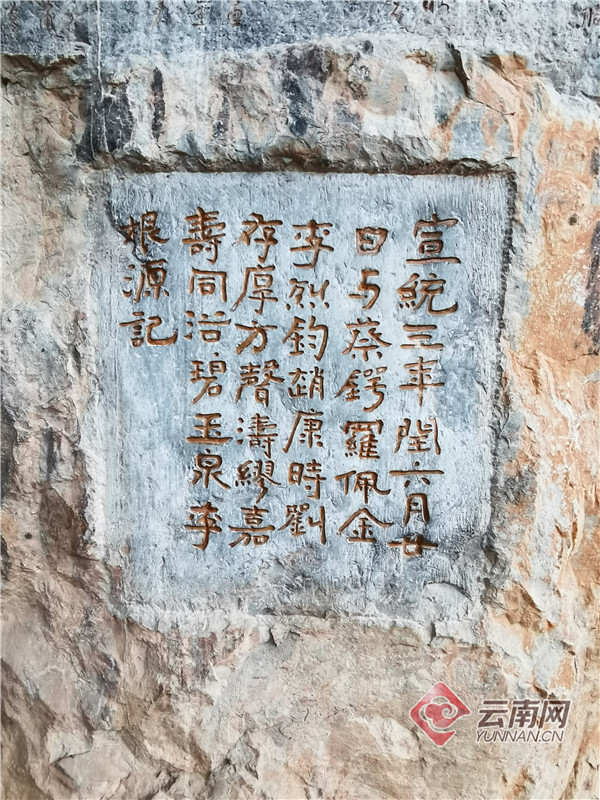 宣統三年閏六月廿
日与蔡鍔羅佩金
李烈鈞趙康時劉
存厚方聲濤繆嘉
壽同浴碧玉泉李
根源記
云南网
YUNNAN.CN